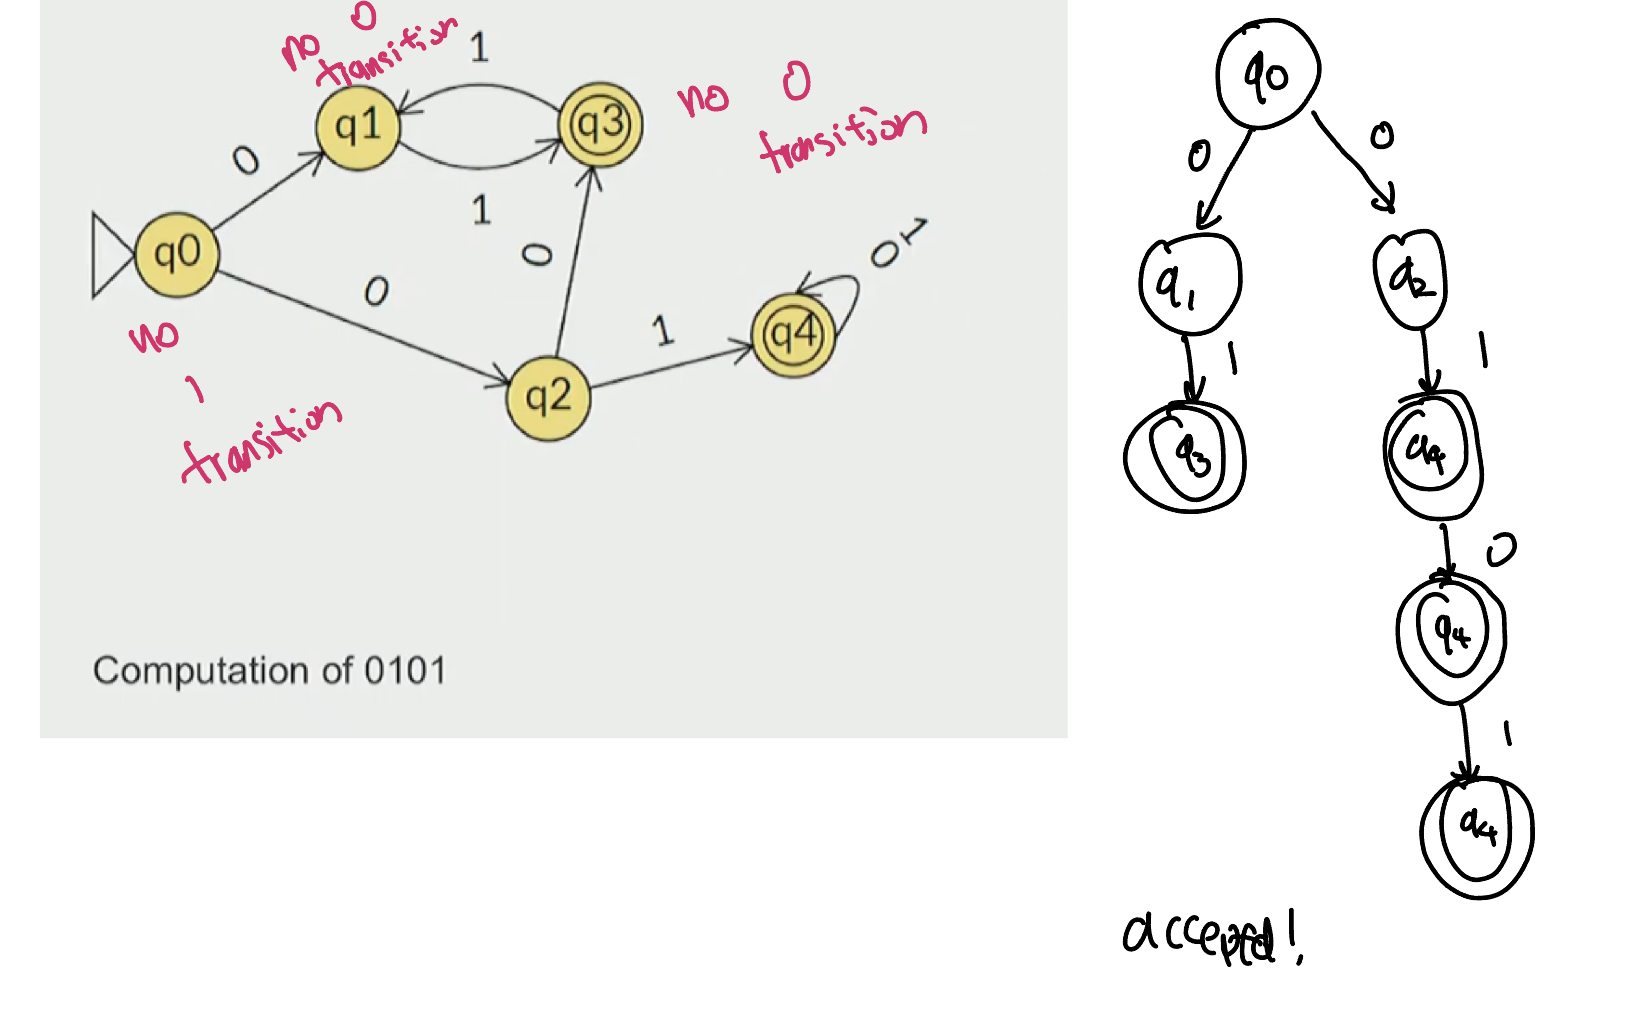 no 0
transition
1
q1
q3
no 0
transition
0
1
q0
0
0
0 1
no
1
transition
q2
1
q4
Computation of 0101
q0
0
0
q1
q2
1
1
q3
q4
0
q4
1
q4
accepted!